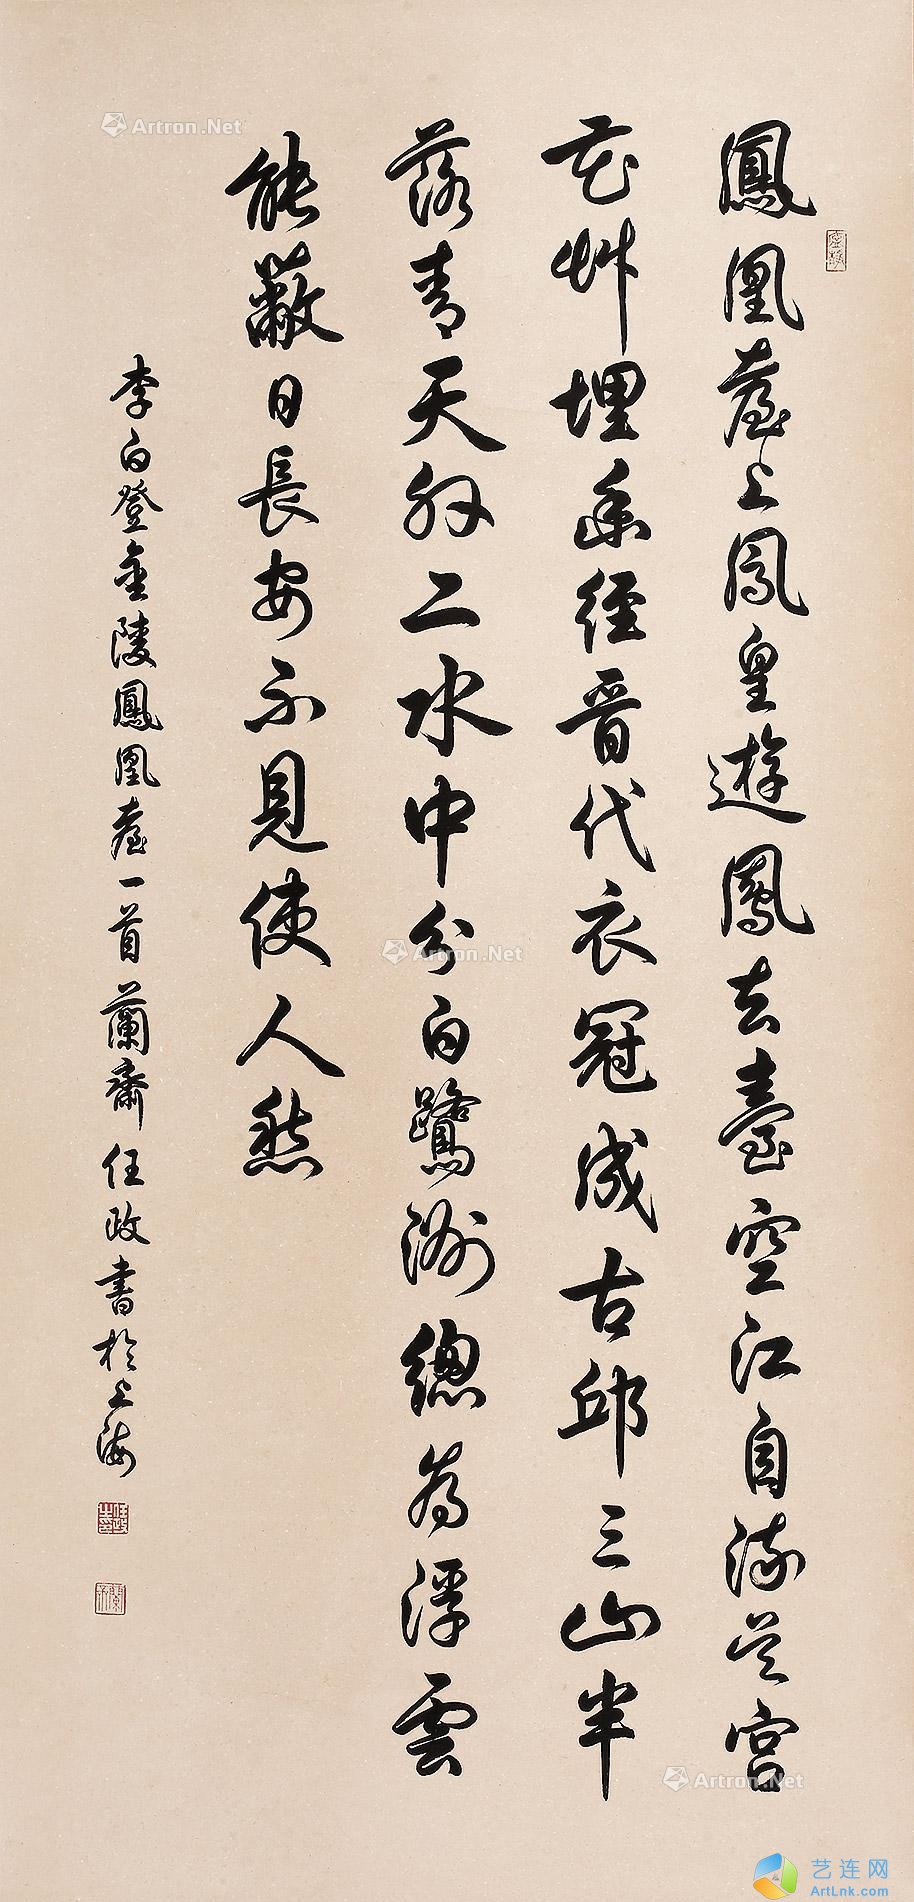 鳳凰臺上鳳皇遊鳳去臺空江自流吳宮
花艸埋幽徑晉代衣冠成古邱三山半
落青天外二水中分白鷺洲總為浮雲
能蔽日長安不見使人愁
李白登金陵鳳凰臺一首蘭齋任政書於上海
Artron.Net
Artron.Net
Artron.Net
艺连网
ArtLnk.com